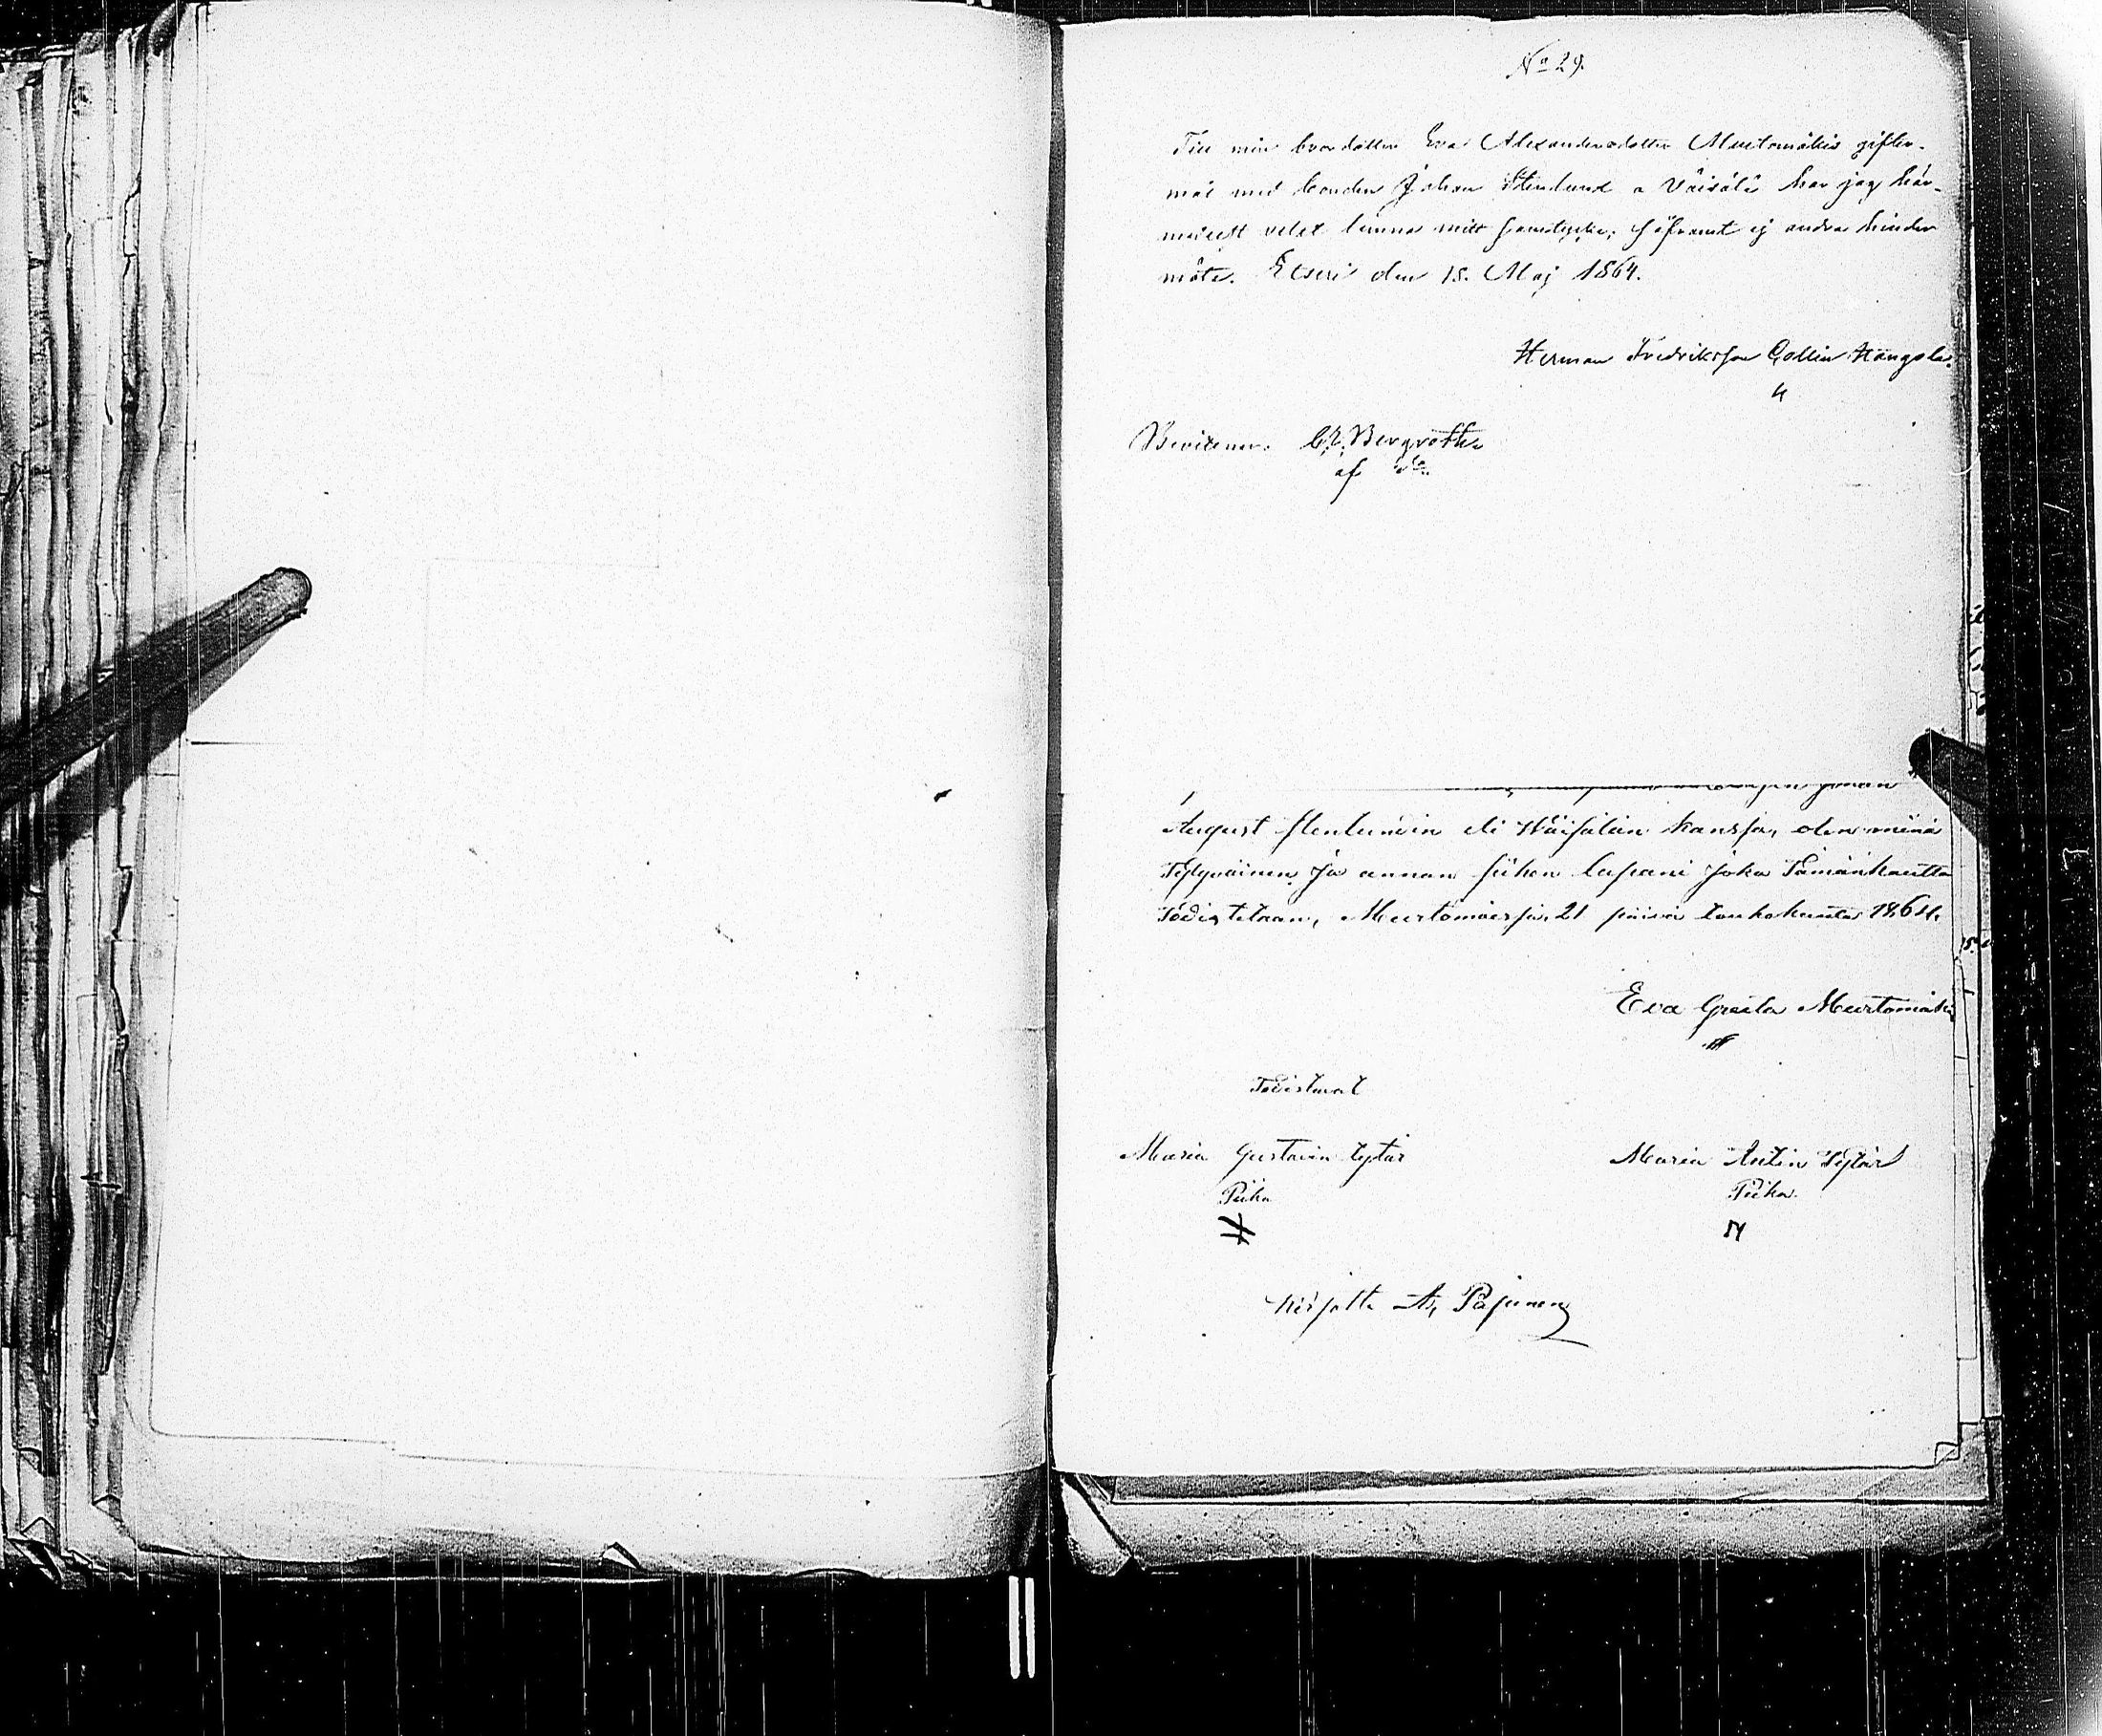 No 29.
Till min brordotter Eva Alexandersdotter Murtomäkis gifter-
mål med bonden Johan Stenlund a Väisälä har jag här-
medelst velat lemna mitt samtycke, såframt ej andra hinder
möta. Etseri den 15. Maj 1864.
Herman Fredriksson Collin Hängola.
Bevitenar. C. E. Bergroth
af
August Stenlundin eli Wäisälän kanssa, olen minä
Tÿtÿväinen Ja annan siihen lupani Joka Tämänkautta
Todistetaan, Murtomäessä, 21 päivä toukokuuta 1864.
Eva Greita Murtomäki
Todistavat
Maria Gustavin tytär
Maria Antin Tÿtär
Piika
Piika.
Kirjotti A, Pajunen